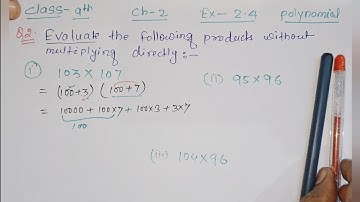 Class- 9th Ch-2 Ex- 2.4 polynomial
Q.2: Evaluate the following products without
multiplying directly:-
(i) 103 × 107
= (100+3) (100+7)
= 10000 + 100×7 + 100×3 + 3×7
100
(ii) 95×96
(iii) 104×96